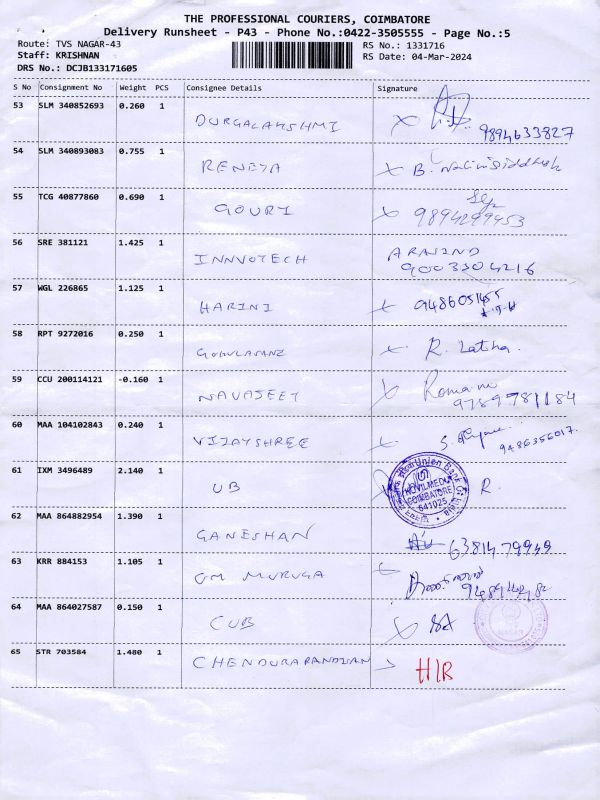 THE PROFESSIONAL COURIERS, COIMBATORE
Delivery Runsheet - P43 - Phone No.:0422-3505555 - Page No.:5
Route: TVS NAGAR-43 RS No.: 1331716
Staff: KRISHNAN RS Date: 04-Mar-2024
DRS No.: DCJB133171605
S No Consignment No Weight PCS Consignee Details Signature
53 SLM 340852693 0.260 1
DURGALAKSHMI 9894633827
54 SLM 340893083 0.755 1
RENEYA B.
55 TCG 40877860 0.690 1
GOURI 9894299453
56 SRE 381121 1.425 1 ARAVIND
INNVOTECH 9003304216
57 WGL 226865 1.125 1
HARINI 9486051455
58 RPT 9272016 0.250 1
R. Latha.
59 CCU 200114121 -0.160 1
NAVAJEET 9789781184
60 MAA 104102843 0.240 1
VIJAYSHREE S. 9486356017.
61 IXM 3496489 2.140 1 Union Bank Of India
UB KOVILMEDU R.
COIMBATORE
641025
62 MAA 864882954 1.390 1
GANESHAN 6381479949
63 KRR 884153 1.105 1
OM MURUGA
64 MAA 864027587 0.150 1
CUB
65 STR 703584 1.480 1
CHENDURAPANDIAN HIR